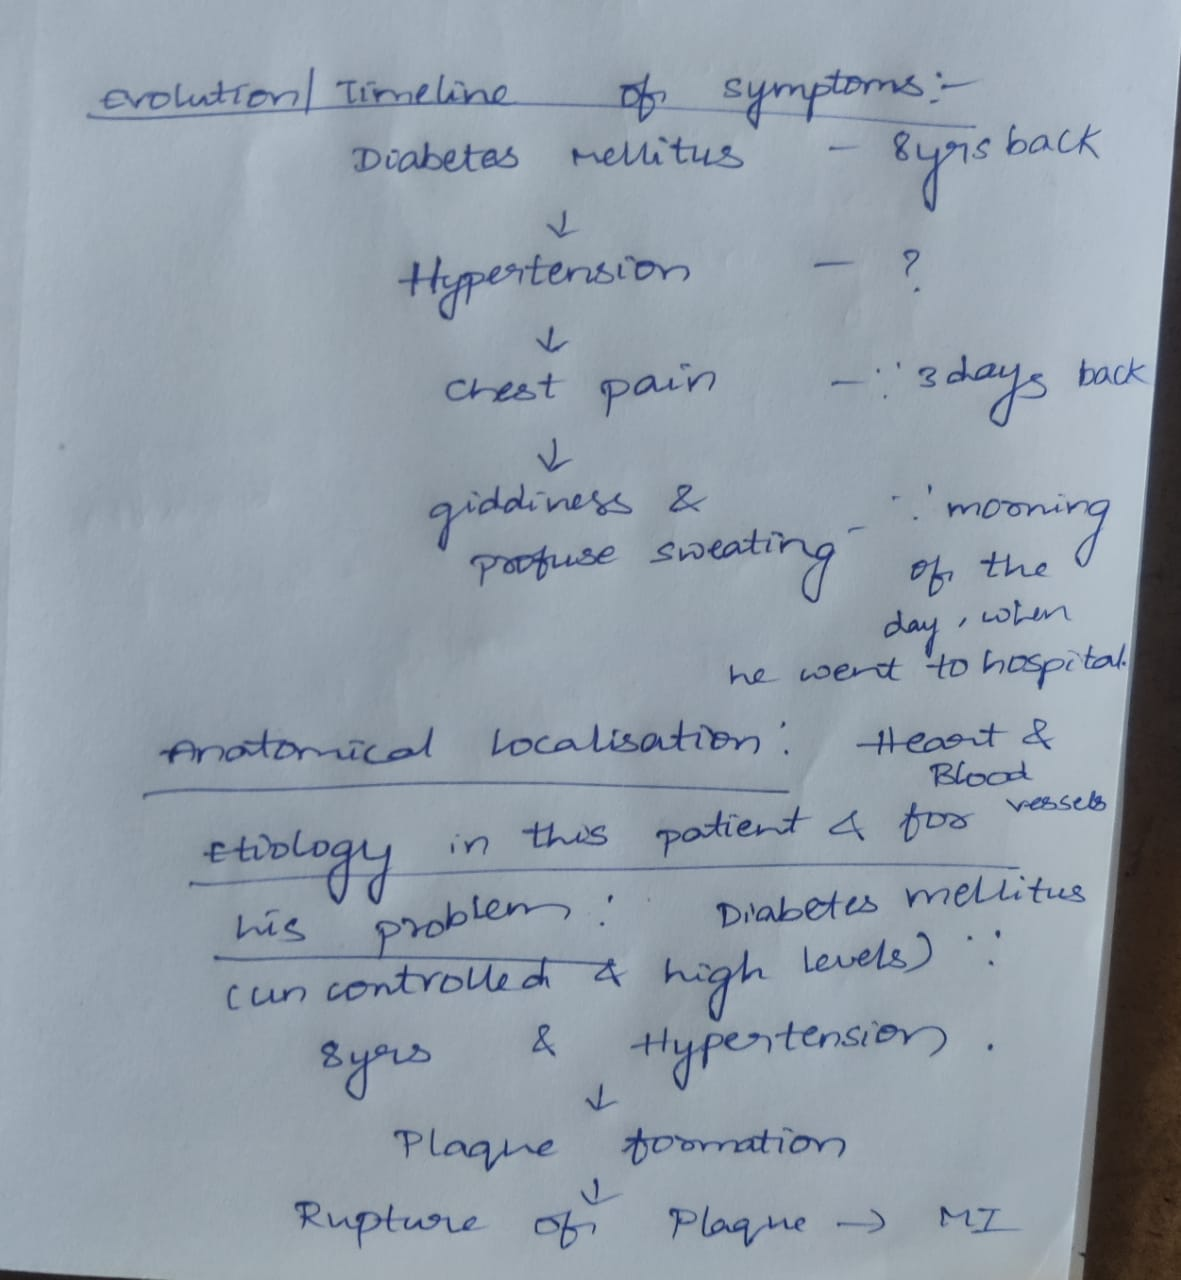 Evolution/ Timeline of symptoms:-
Diabetes mellitus - 8yrs back
↓
Hypertension - ?
↓
chest pain - ∵ 3 days back
↓
giddiness & - ∵ morning
profuse sweating of the
day, when
he went to hospital.
Anatomical Localisation: Heart &
Blood
vessels
Etiology in this patient & for
his problem: Diabetes mellitus
(uncontrolled & high levels) ∵
8yrs & Hypertension.
↓
Plaque formation
↓
Rupture of Plaque → MI